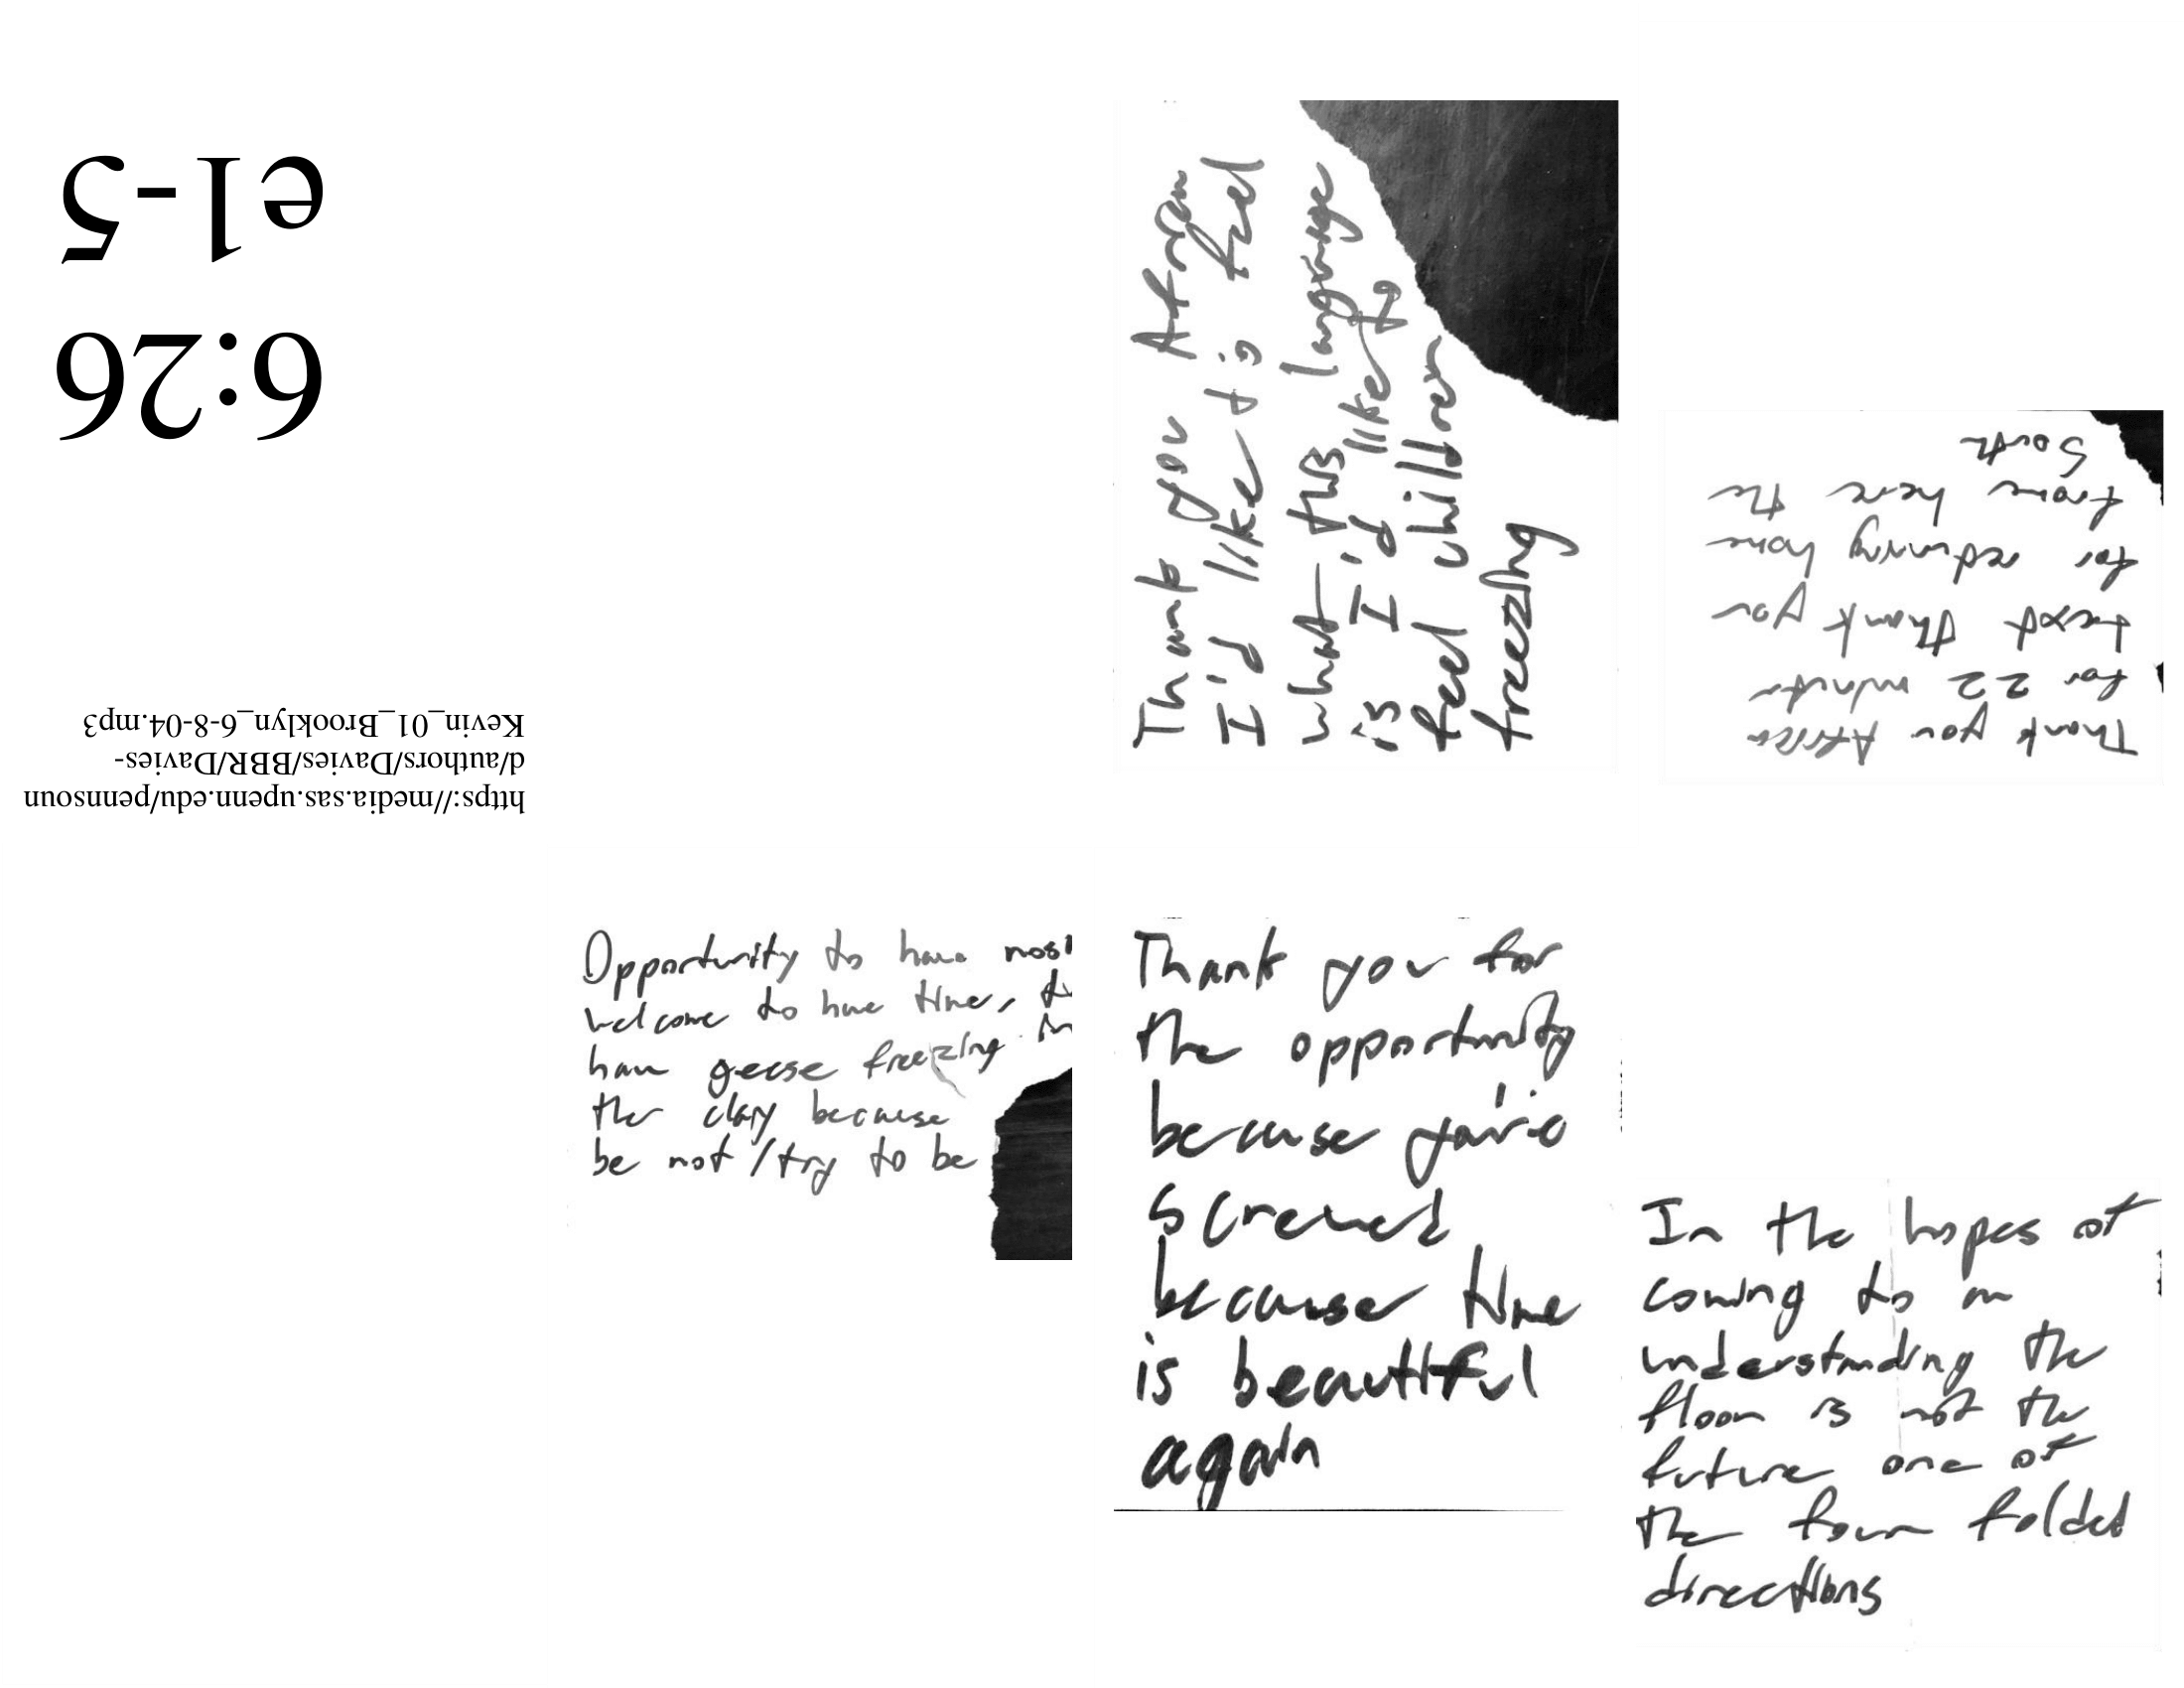 https://media.sas.upenn.edu/pennsoun
d/authors/Davies/BBR/Davies-
Kevin_01_Brooklyn_6-8-04.mp3
6:26
e1-5
Thank you
I'd like to feel
what this language
is I'd like to
feel children
freezing
Thank you Africa
for 22 minute
text thank you
for returning home
from here the
South
Opportunity to have
welcome to have time,
have geese freezing in
the clay because
be not / try to be
Thank you for
the opportunity
because you're
screwed
because time
is beautiful
again
In the hopes of
coming to an
understanding the
floor is not the
future one of
the four folded
directions